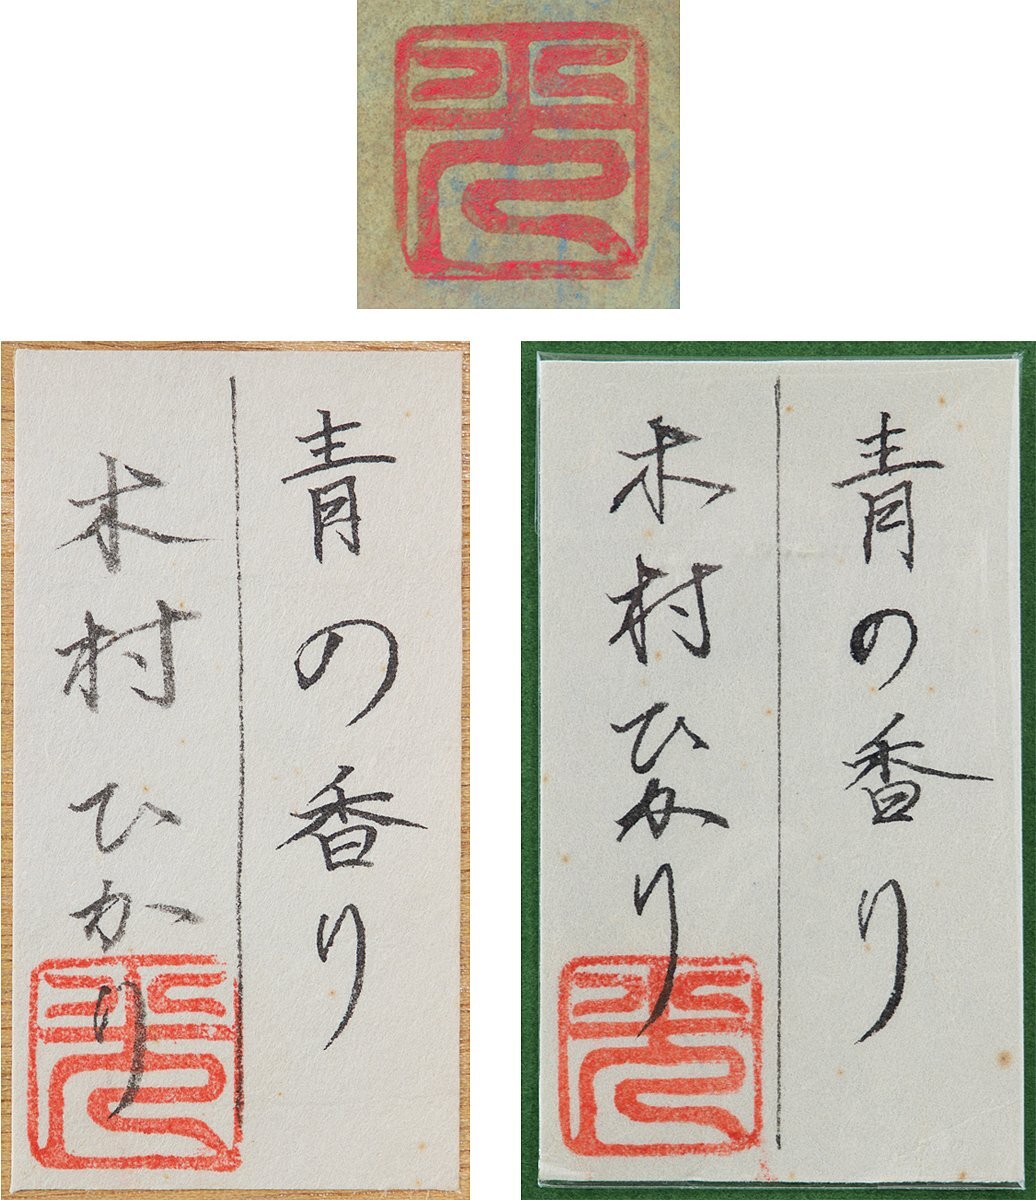 光
青の香り
木村ひかり
光
青の香り
木村ひかり
光